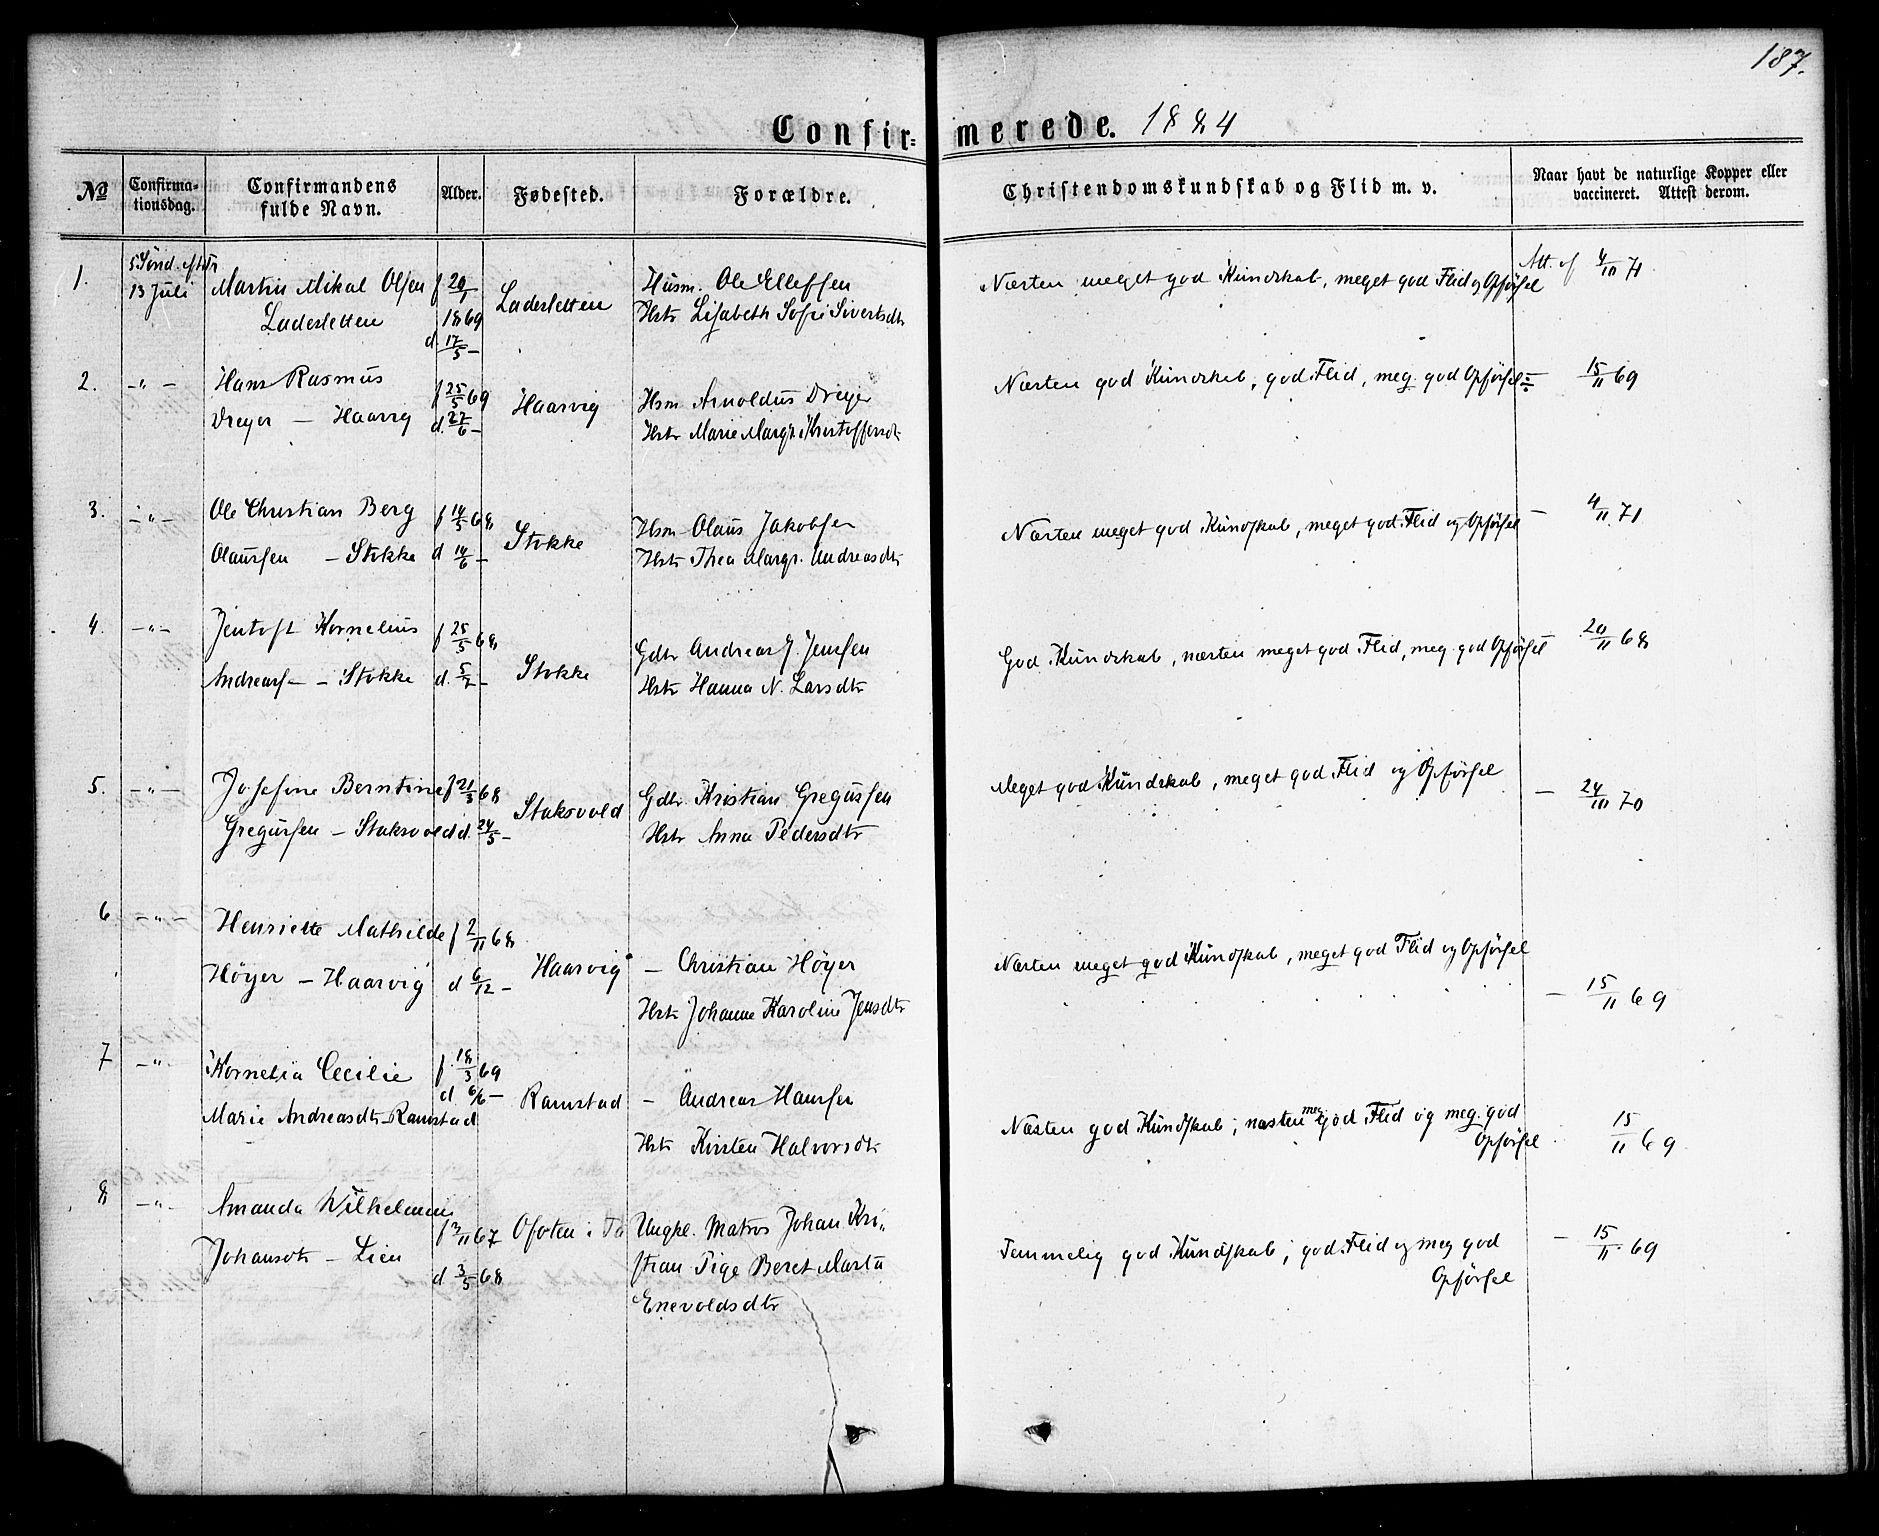 187.
Confir=merede. 1884
No
Confirma-
tionsdag.
Confirmandens
fulde Navn.
Alder.
Fødested.
Forældre.
Christendomskundskab og Flid m. v.
Naar havt de naturlige Kopper eller
vaccineret. Attest derom.
1.
5 Sönd. eft. Tr
13 Juli
Martin Mikal Olsen
Ladesletten
f 20/1
1869
d. 17/5 -
Ladesletten
Husm. Ole Ellefsen
Hstr Lisabeth Sofie Sivertsdtr
Næsten meget god Kundskab, meget god Flid og Opförsel
Att. af 4/10 71
2.
-"-
Hans Rasmus
Dreyer - Haarvig
f 25/5 69
d. 27/6 -
Haarvig
Hsm Arnoldus Dreyer
Hstr Marie Margr. Kristoffersdtr
Næsten god Kundskab, god Flid, meg. god Opförsel
- 15/11 69
3.
-"-
Ole Christian Berg
Olaussen - Stokke
f 14/5 68
d 14/6 -
Stokke
Hsm Olaus Jakobsen
Hstr Thea Margr. Andreasdtr
Næsten meget god Kundskab, meget god Flid og Opförsel
- 4/11 71
4.
-"-
Jentoft Kornelius
Andreas- - Stokke
f 25/5 68
d. 5/7 -
Stokke
Gdbr Andreas J. Jensen
Hstr Hanna N. Larsdtr
God Kundskab, næsten meget god Flid, meg. god Opförsel
- 20/11 68
5.
-"-
Josefine Berntine
Gregussen - Staksvold
f 21/3 68
d. 24/5 -
Staksvold
Gdbr. Kristian Gregussen
Hstr Anna Pedersdtr
Meget god Kundskab, meget god Flid og Opförsel
- 24/10 70
6
-"-
Henriette Mathilde
Höyer - Haarvig
f 2/11 68
d 6/12 -
Haarvig
- Christian Höyer
Hstr Johanne Karoline Jensdtr
Næsten meget god Kundskab, meget god Flid og Opförsel
- 15/11 69
7
-"-
Kornelia Cecilie
Marie Andreasdtr Ramstad
f. 18/3 69
d 6/6 -
Ramstad
- Andreas Hansen
Hstr Kirsten Halvorsdtr
Næsten god Kundskab, næsten meg. god Flid og meg. god
Opförsel
15/11 69
8
-"-
Amanda Wilhelmine
Johansdtr - Lien
f 3/11 67
d 3/5 68
Ofoten i
Ungkl. Matros Johan Kri-
stian Pige Beret Marta
Enevoldsdtr
Temmelig god Kundskab, god Flid og meg god
Opförsel
- 15/11 69